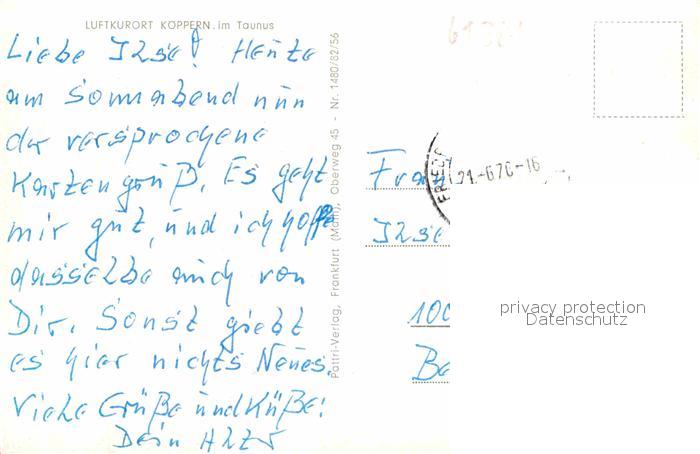 LUFTKURORT KÖPPERN im Taunus
Liebe Ilse! Heute
am Sonnabend nun
der versprochene
Kartengruß. Es geht
mir gut, und ich hoffe
dasselbe auch von
Dir. Sonst giebt
es hier nichts Neues.
Viele Grüße und Küße!
Dein Alter
Pattri-Verlag, Frankfurt (Main), Oberweg 45 - Nr. 1480/82/56
Frau
Ilse
100
Be
privacy protection
Datenschutz